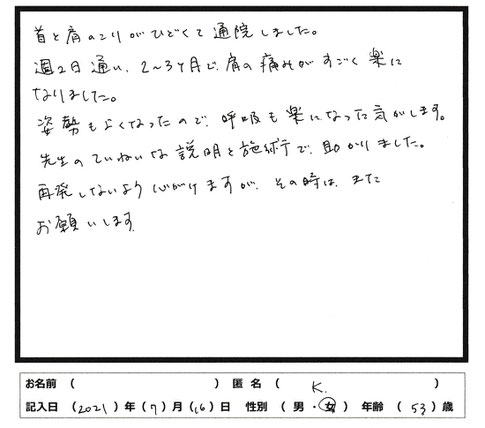 首と肩のこりがひどくて通院しました。
週2日通い、2〜3ヶ月で、肩の痛みがすごく楽に
なりました。
姿勢もよくなったので、呼吸も楽になった気がします。
先生のていねいな説明と施術で、助かりました。
再発しないよう心がけますが、その時は、また
お願いします。
お名前 ( ) 匿名 ( K. )
記入日 (2021) 年 (7) 月 (16) 日 性別 ( 男 ・ 女 ) 年齢 ( 53 ) 歳